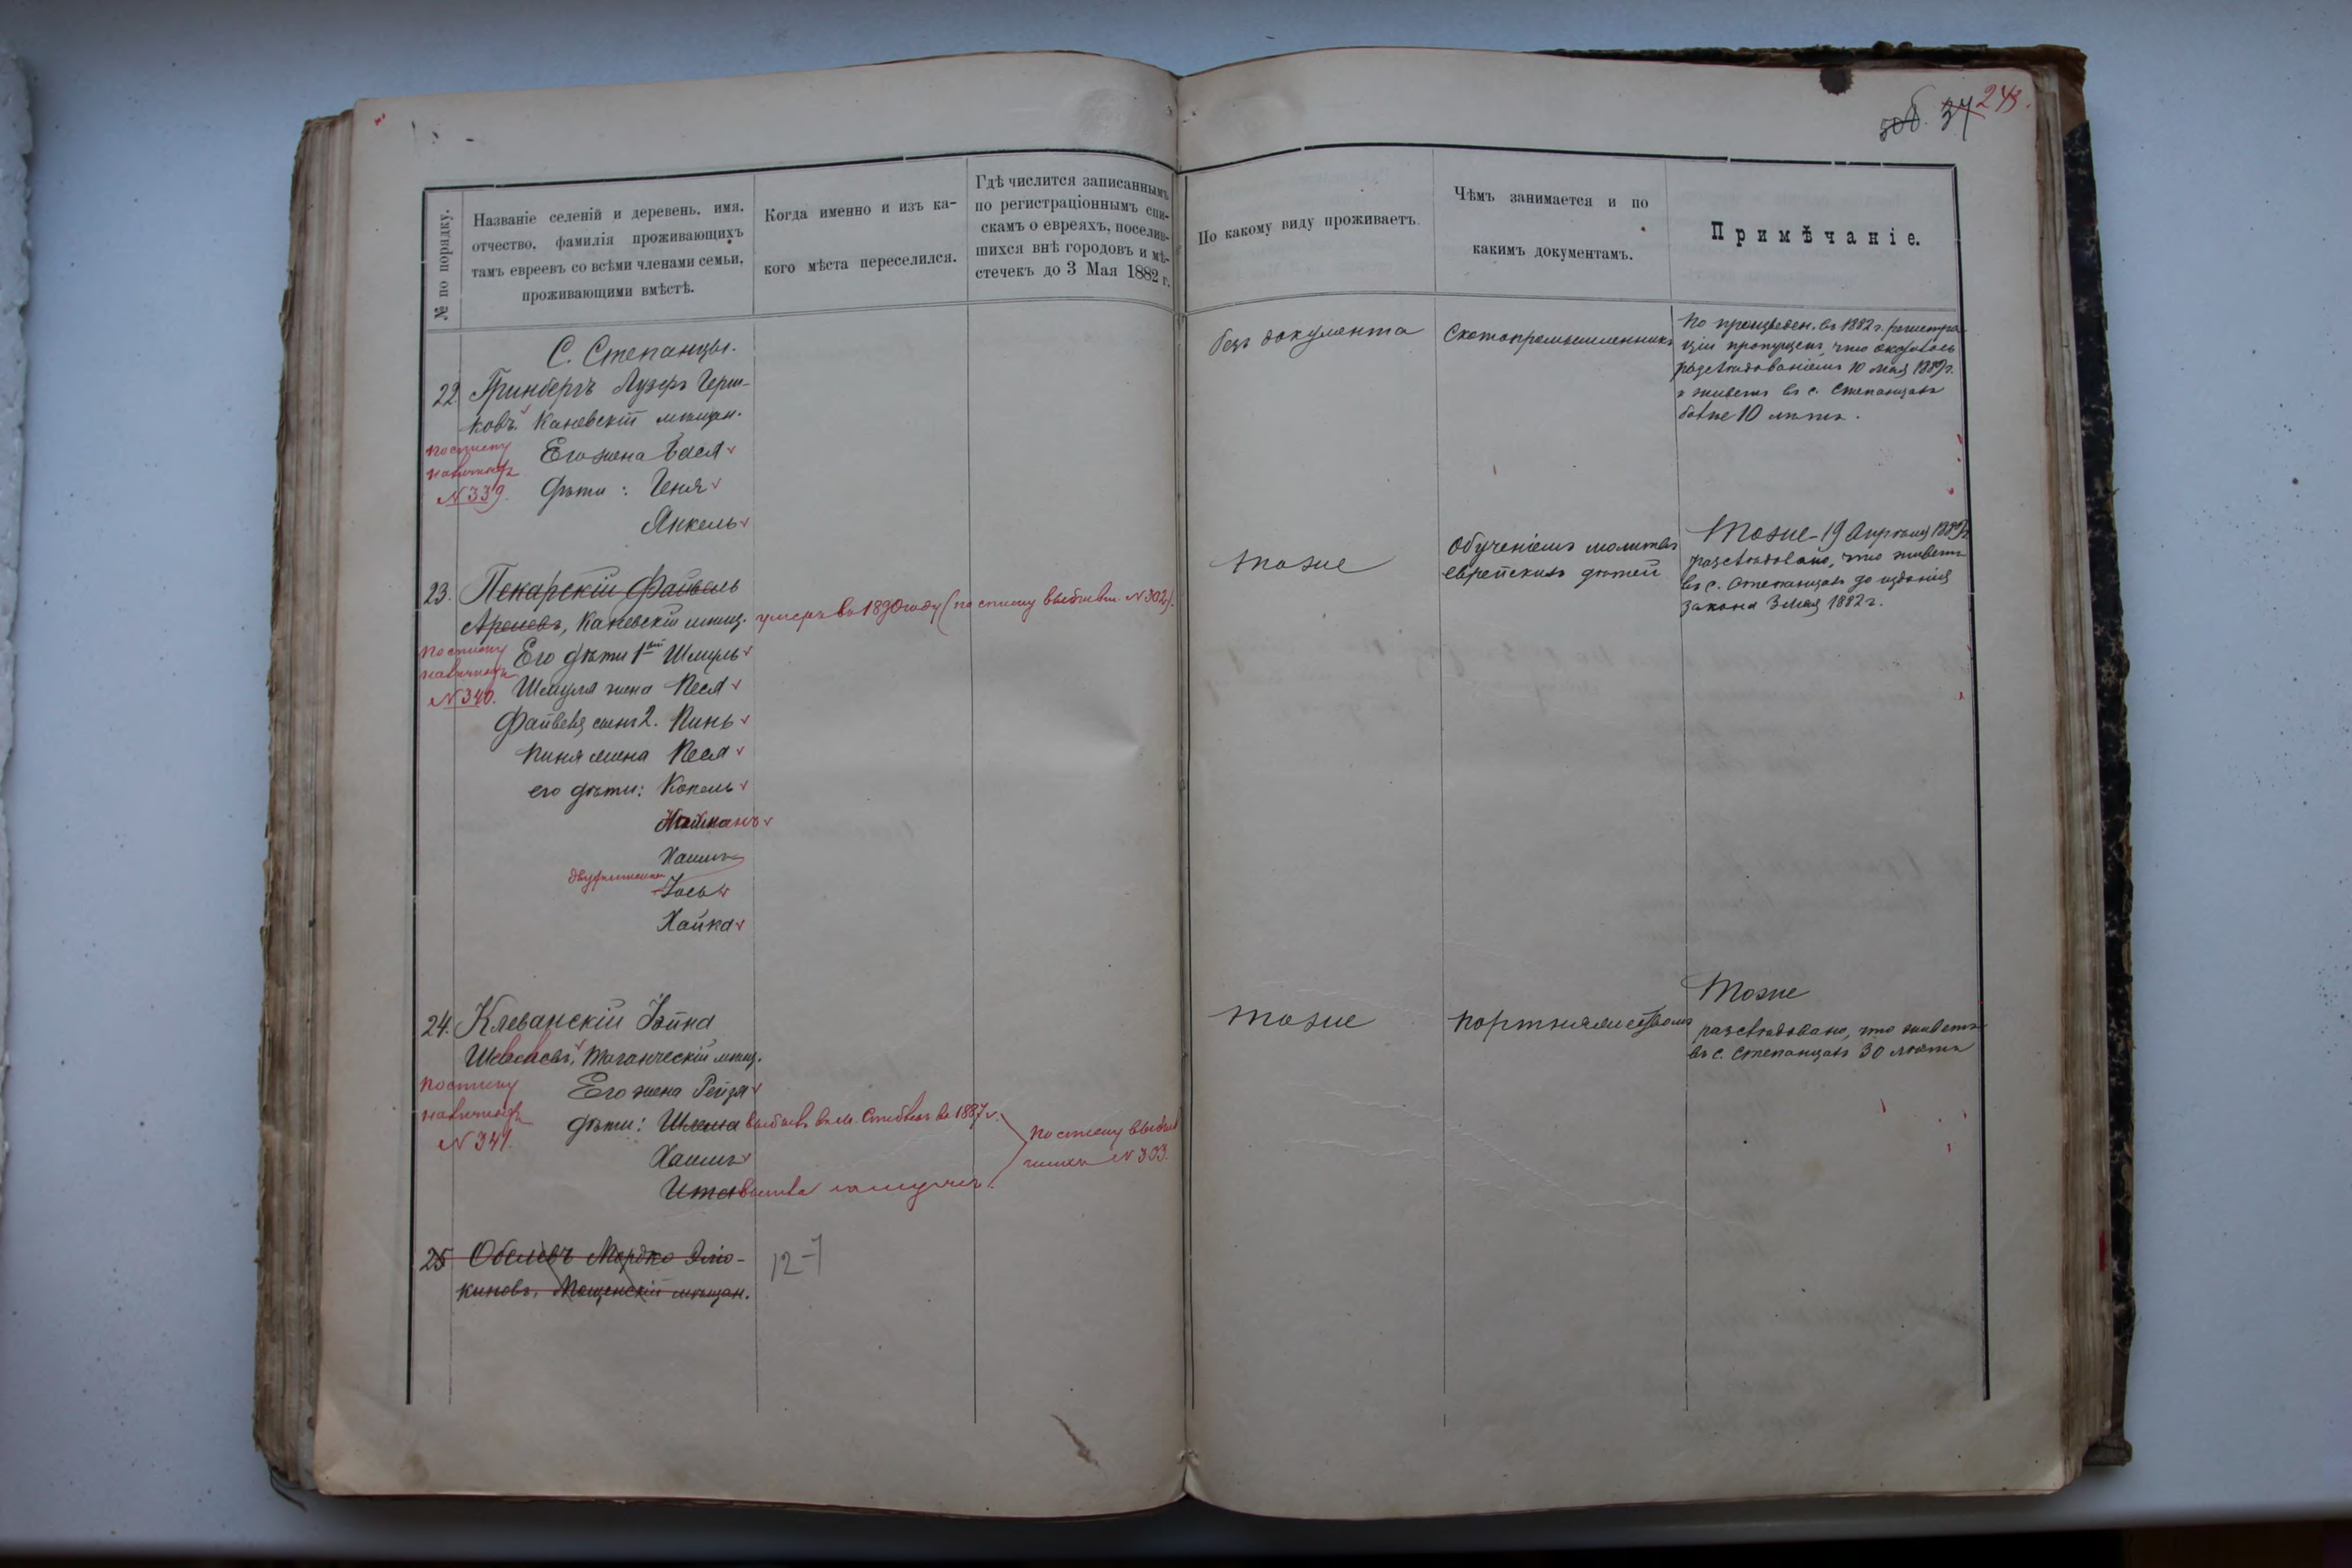 243.
37
№ по порядку.
Названіе селеній и деревень, имя,
отчество, фамилія проживающихъ
тамъ евреевъ со всѣми членами семьи,
проживающими вмѣстѣ.
Когда именно и изъ ка-
кого мѣста переселился.
Гдѣ числится записаннымъ
по регистраціоннымъ спи-
скамъ о евреяхъ, поселив-
шихся внѣ городовъ и мѣ-
стечекъ до 3 Мая 1882 г.
По какому виду проживаетъ.
Чѣмъ занимается и по
какимъ документамъ.
Примѣчаніе.
С. Степанцы.
22. Гринбергъ Лузеръ Герш-
ковъ, Каневскій мѣщан.
по списку
№ 339.
Его жена Бася
дѣти: Геня
Янкель
безъ документа
Скотопромышленникъ
По произведен. въ 1882 г. регистра-
ціи пропущенъ, что оказалось
10 Мая 1889 г.
живетъ въ с. Степанцахъ
болѣе 10 лѣтъ.
23. Пекарскій Файвель
Ароновъ, Каневскій мѣщ.
умеръ въ 1890 году (по списку выбывш. № 302).
по списку
№ 340.
Его дѣти 1й Шмуль
Шмуля жена Песя
Файвеля сынъ 2. Пинь
Пиня жена Песя
его дѣти: Копель
Хаимъ
Іось
Хайка
тоже
Обученіемъ молитвъ
еврейскихъ дѣтей
Тоже 19 Апрѣля 1889 г.
разслѣдовано, что живетъ
въ с. Степанцахъ до изданія
закона 3 Мая 1882 г.
24. Клеванскій
Таганческій мѣщ.
по списку
№ 341.
Его жена Рейзя
дѣти: Шлема выбылъ въ м. Стеблевъ въ 1887 г.
Хаимъ
Ита вышла замужъ.
по списку выбыв-
шихъ № 303.
тоже
портняжествомъ
Тоже
разслѣдовано, что живетъ
въ с. Степанцахъ 30 лѣтъ
25 Мордко
киновъ, мѣщан.
12-7